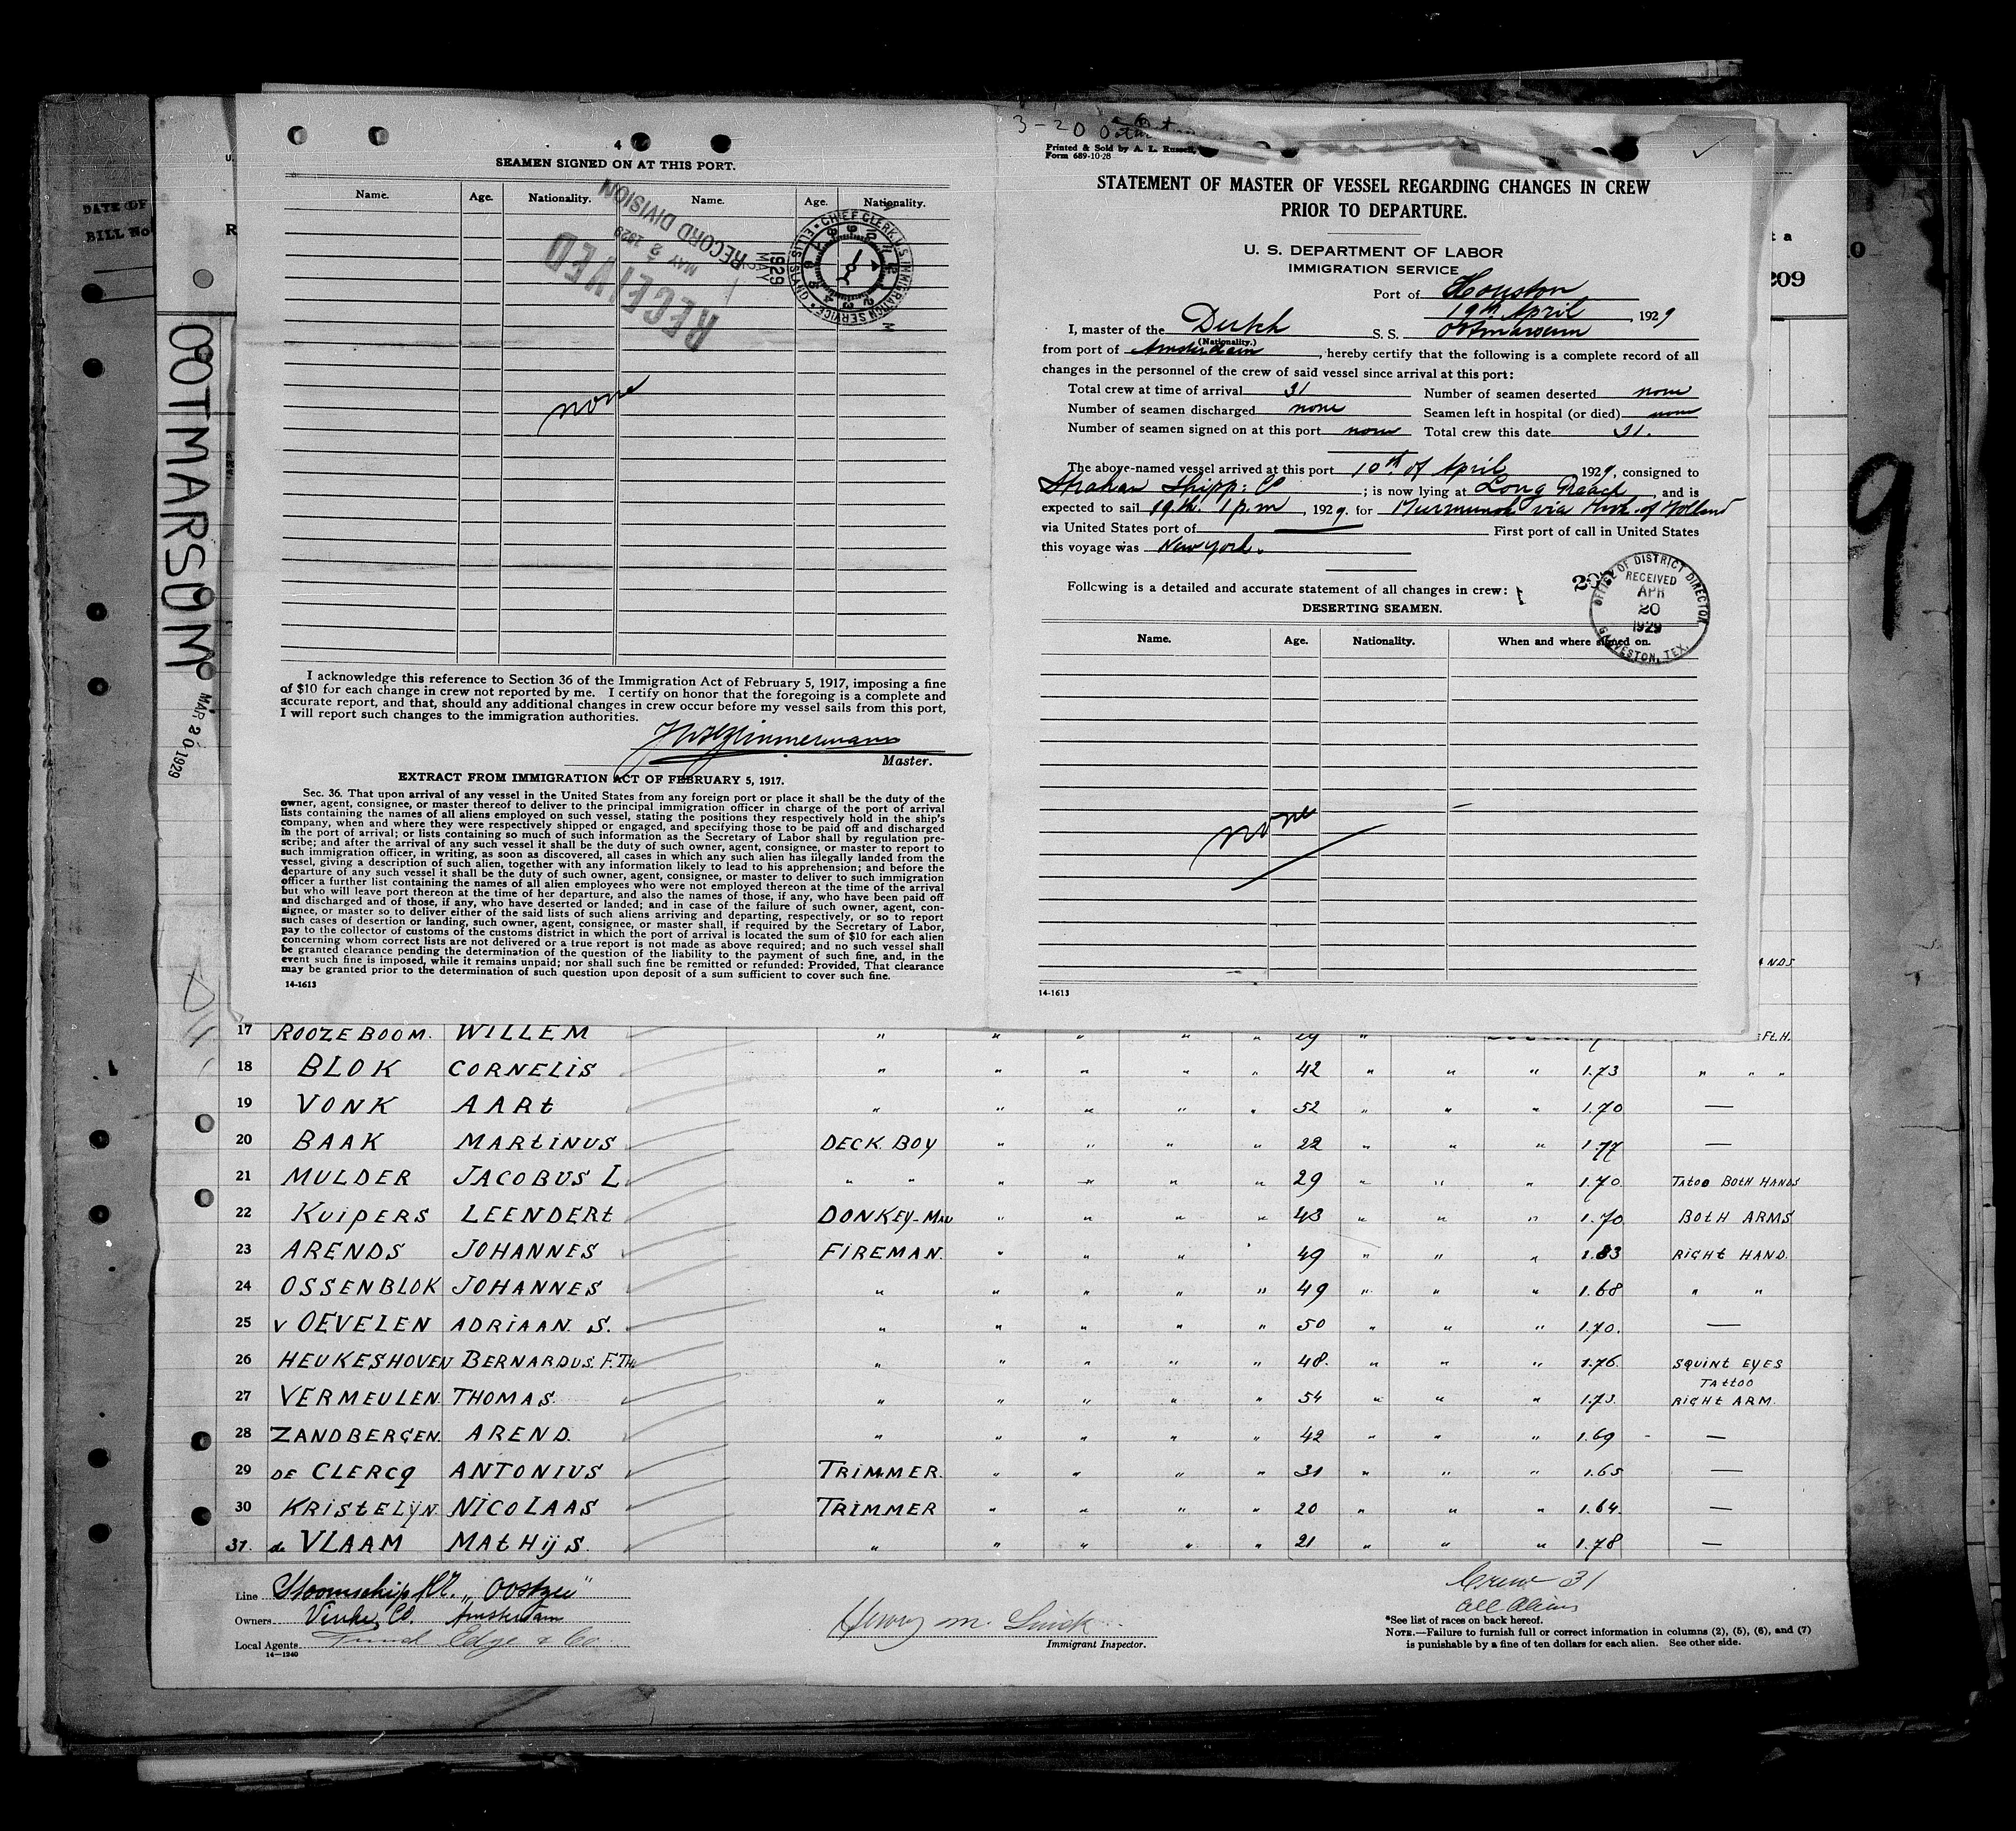 DATE OF
BILL No
OOTMARSUM
MAR 20 1929
4
SEAMEN SIGNED ON AT THIS PORT.
Name. Age. Nationality. Name. Age. Nationality.
RECEIVED
MAY 2 1929
RECORD DIVISION
CHIEF CLERK U.S. IMMIGRATION SERVICE
1929
MAY
none
I acknowledge this reference to Section 36 of the Immigration Act of February 5, 1917, imposing a fine
of $10 for each change in crew not reported by me. I certify on honor that the foregoing is a complete and
accurate report, and that, should any additional changes in crew occur before my vessel sails from this port,
I will report such changes to the immigration authorities.
Master.
EXTRACT FROM IMMIGRATION ACT OF FEBRUARY 5, 1917.
Sec. 36. That upon arrival of any vessel in the United States from any foreign port or place it shall be the duty of the
owner, agent, consignee, or master thereof to deliver to the principal immigration officer in charge of the port of arrival
lists containing the names of all aliens employed on such vessel, stating the positions they respectively hold in the ship's
company, when and where they were respectively shipped or engaged, and specifying those to be paid off and discharged
in the port of arrival; or lists containing so much of such information as the Secretary of Labor shall by regulation pre-
scribe; and after the arrival of any such vessel it shall be the duty of such owner, agent, consignee, or master to report to
such immigration officer, in writing, as soon as discovered, all cases in which any such alien has illegally landed from the
vessel, giving a description of such alien, together with any information likely to lead to his apprehension; and before the
departure of any such vessel it shall be the duty of such owner, agent, consignee, or master to deliver to such immigration
officer a further list containing the names of all alien employees who were not employed thereon at the time of the arrival
but who will leave port thereon at the time of her departure, and also the names of those, if any, who have been paid off
and discharged and of those, if any, who have deserted or landed; and in case of the failure of such owner, agent, con-
signee, or master so to deliver either of the said lists of such aliens arriving and departing, respectively, or so to report
such cases of desertion or landing, such owner, agent, consignee, or master shall, if required by the Secretary of Labor,
pay to the collector of customs of the customs district in which the port of arrival is located the sum of $10 for each alien
concerning whom correct lists are not delivered or a true report is not made as above required; and no such vessel shall
be granted clearance pending the determination of the question of the liability to the payment of such fine, and, in the
event such fine is imposed, while it remains unpaid; nor shall such fine be remitted or refunded: Provided, That clearance
may be granted prior to the determination of such question upon deposit of a sum sufficient to cover such fine.
14-1613
3-20
Printed & Sold by A. L. Russell,
Form 689-10-28
STATEMENT OF MASTER OF VESSEL REGARDING CHANGES IN CREW
PRIOR TO DEPARTURE.
U. S. DEPARTMENT OF LABOR
IMMIGRATION SERVICE
Port of Houston
19th April, 1929
I, master of the Dutch S. S. Ootmarsum
(Nationality.)
from port of Amsterdam, hereby certify that the following is a complete record of all
changes in the personnel of the crew of said vessel since arrival at this port:
Total crew at time of arrival 31 Number of seamen deserted none
Number of seamen discharged none Seamen left in hospital (or died) none
Number of seamen signed on at this port none Total crew this date 31.
The above-named vessel arrived at this port 10th of April 1929, consigned to
Strahan Shipp: Co; is now lying at Long Reach, and is
expected to sail 19th. 1 p.m, 1929. for Murmansk via Hook of Holland
via United States port of First port of call in United States
this voyage was New York.
Following is a detailed and accurate statement of all changes in crew:
DESERTING SEAMEN.
OFFICE OF DISTRICT DIRECTOR
RECEIVED
APR
20
1929
GALVESTON, TEX.
Name. Age. Nationality. When and where signed on.
none
14-1613
209
9
17 ROOZEBOOM. WILLEM " " " " " 29 "
18 BLOK CORNELIS " " " " " 42 " " " 1.73 " " "
19 VONK AARt " " " " " 52 " " " 1.70 —
20 BAAK MARtINUS DECK BOY " " " " 22 " " " 1.77 —
21 MULDER JACOBUS L. " " " " " " 29 " " " 1.70 TAtoo BotH HANDS
22 KUiPERS LEENDERt DONKEY-MAN " " " " 43 " " " 1.70 BotH ARMS
23 ARENDS JOHANNES FIREMAN. " " " " 49 " " " 1.83 RiGHt HAND.
24 OSSENBLOK JOHANNES " " " " " 49 " " " 1.68 " "
25 v OEVELEN ADRIAAN. S. " " " " " 50 " " " 1.70. —
26 HEUKESHOVEN BERNARDUS. F.TH. " " " " " 48. " " " 1.76. SQUINT EYES
27 VERMEULEN. THOMAS. " " " " " 54 " " " 1.73. TAttOO RIGHt ARM.
28 ZANDBERGEN. AREND. " " " " " 42 " " " 1.69 —
29 DE CLERCq ANTONIUS TRIMMER. " " " " 31 " " " 1.65 —
30 KRIStELIJN. NICOLAAS TRIMMER " " " " 20 " " " 1.64. —
31. de VLAAM MAtHijS. " " " " " 21 " " " 1.78 —
Line Stoomschip Mt. "Oostzee"
Owners Vinke, Co. Amsterdam
Local Agents Funch Edye & Co.
14—1240
Immigrant Inspector.
Crew 31
all Aliens
*See list of races on back hereof.
NOTE.—Failure to furnish full or correct information in columns (2), (5), (6), and (7)
is punishable by a fine of ten dollars for each alien. See other side.